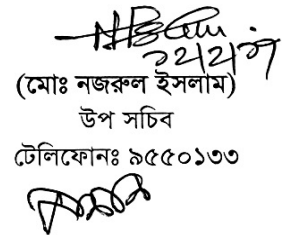 (মোঃ নজরুল ইসলাম)
উপ সচিব
টেলিফোনঃ ৯৫৫০১৩৩